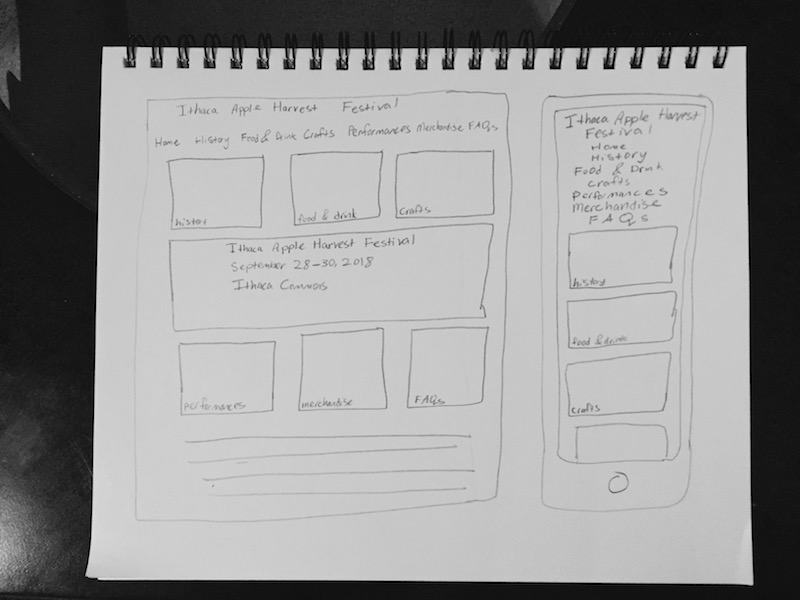 Ithaca Apple Harvest Festival
Home History Food & Drink Crafts Performances Merchandise FAQs
history food & drink crafts
Ithaca Apple Harvest Festival
September 28-30, 2018
Ithaca Commons
performances merchandise FAQs
Ithaca Apple Harvest
Festival
Home
History
Food & Drink
Crafts
Performances
Merchandise
FAQs
history
food & drink
crafts